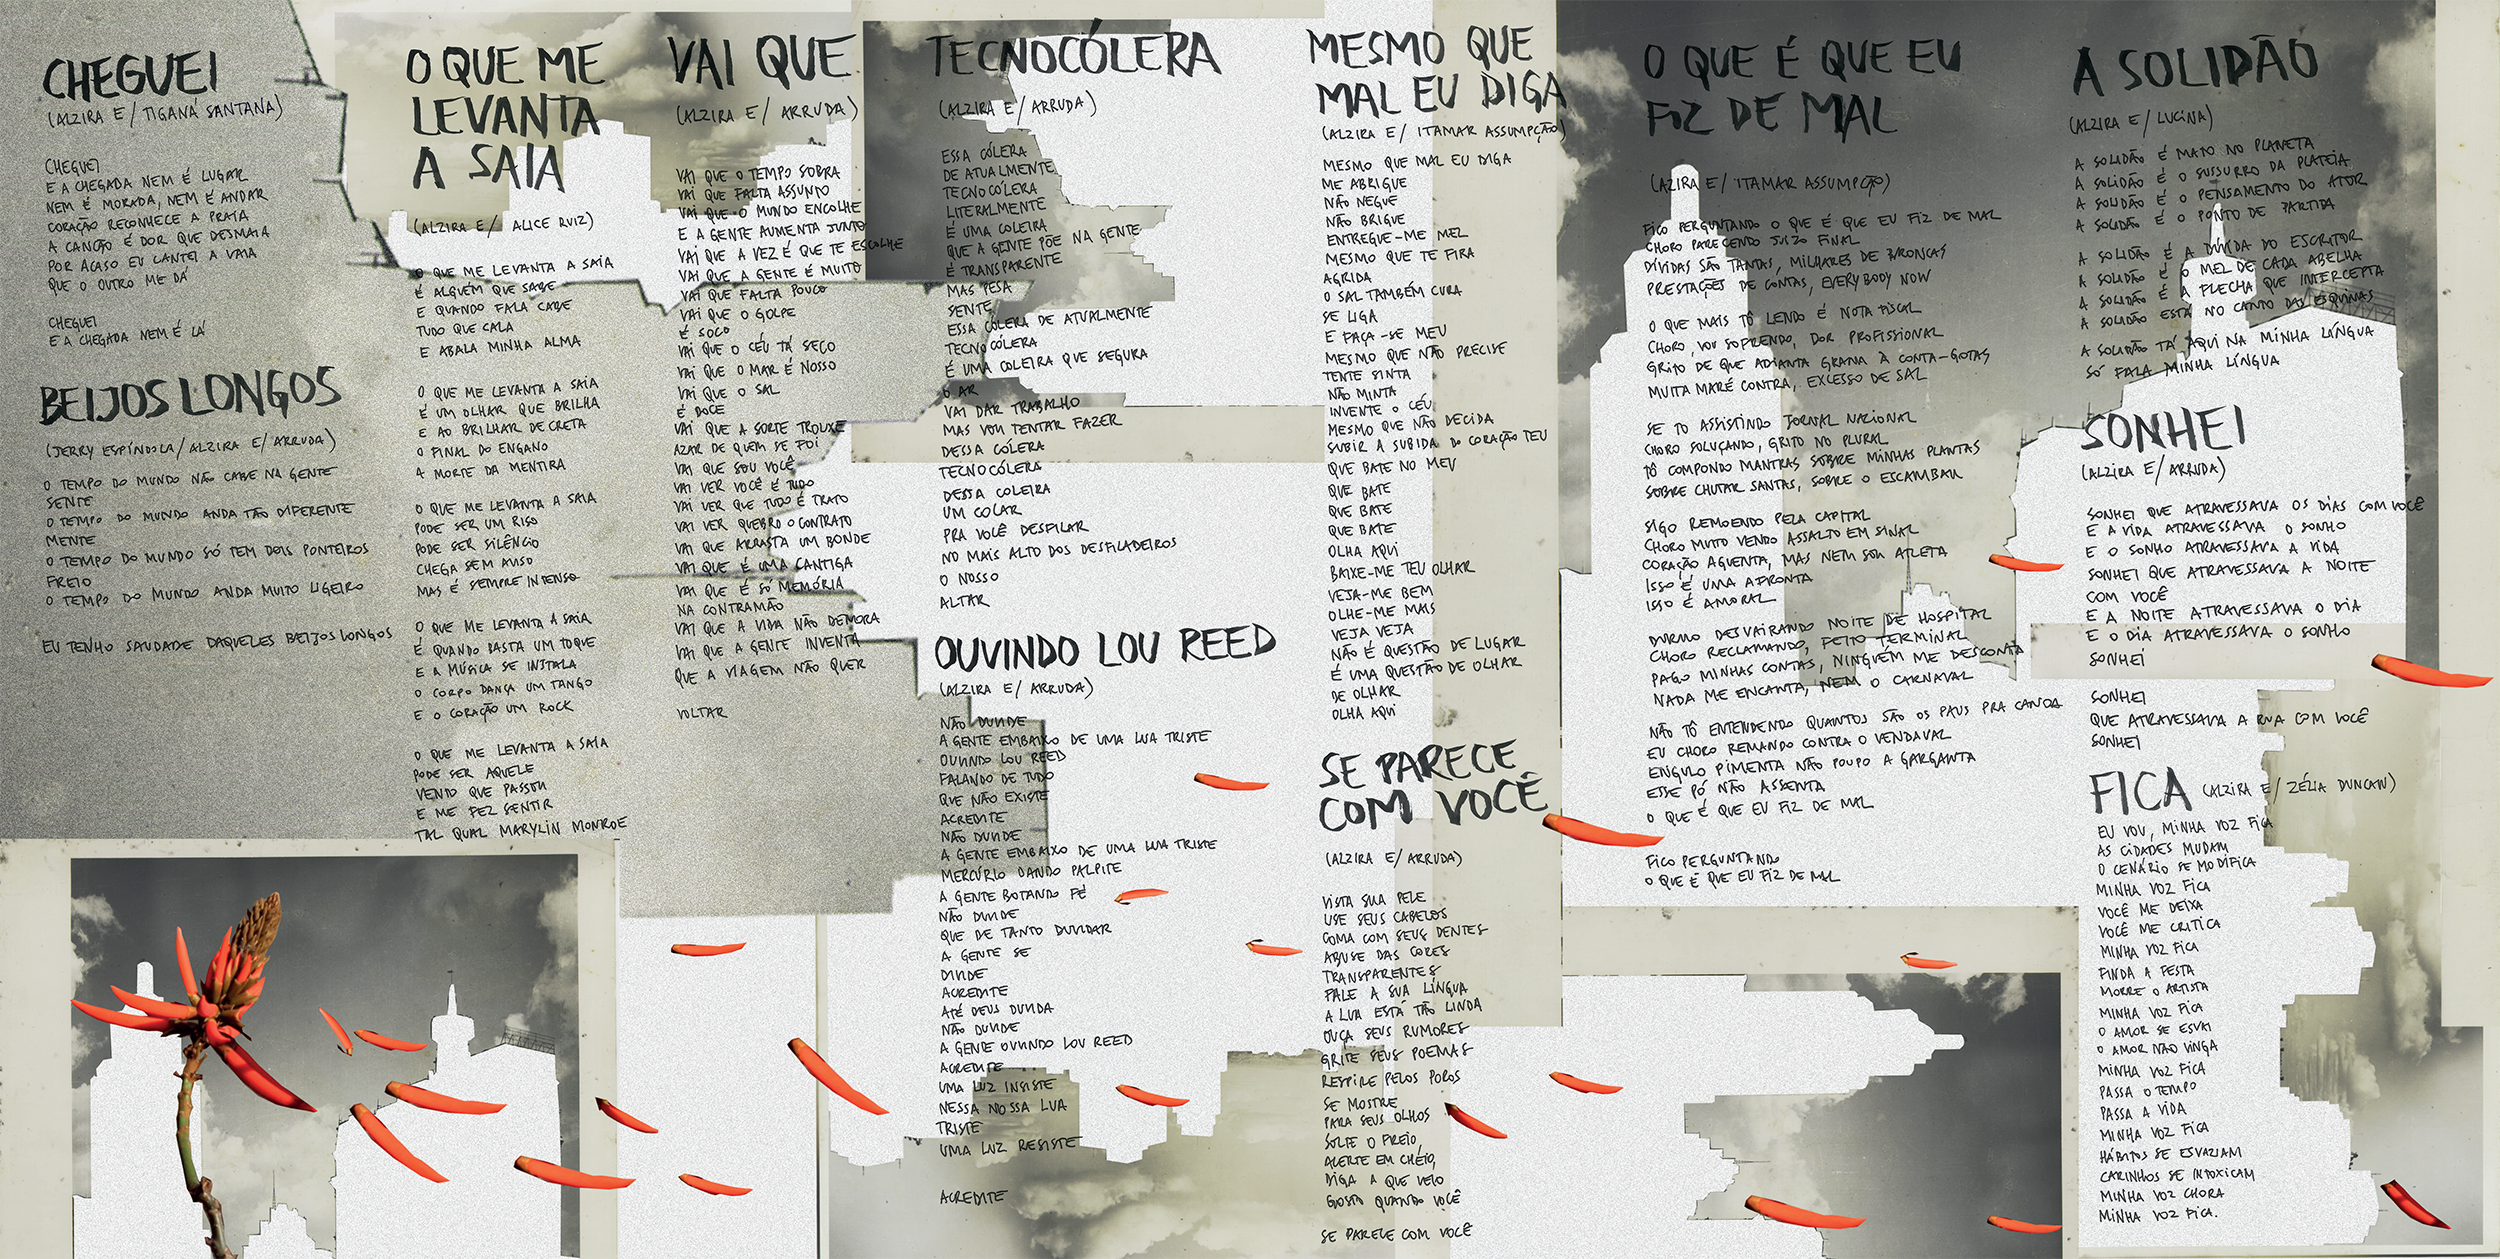 CHEGUEI
(ALZIRA E / TIGANÁ SANTANA)
CHEGUEI
E A CHEGADA NEM É LUGAR
NEM É MORADA, NEM É ANDAR
CORAÇÃO RECONHECE A PRAIA
A CANÇÃO É DOR QUE DESMAIA
POR ACASO EU CANTEI A VAIA
QUE O OUTRO ME DÁ
CHEGUEI
E A CHEGADA NEM É LÁ
BEIJOS LONGOS
(JERRY ESPÍNDOLA / ALZIRA E / ARRUDA)
O TEMPO DO MUNDO NÃO CABE NA GENTE
SENTE
O TEMPO DO MUNDO ANDA TÃO DIFERENTE
MENTE
O TEMPO DO MUNDO SÓ TEM DOIS PONTEIROS
FREIO
O TEMPO DO MUNDO ANDA MUITO LIGEIRO
EU TENHO SAUDADE DAQUELES BEIJOS LONGOS
O QUE ME
LEVANTA
A SAIA
(ALZIRA E / ALICE RUIZ)
O QUE ME LEVANTA A SAIA
É ALGUÉM QUE SABE
E QUANDO FALA CABE
TUDO QUE CALA
E ABALA MINHA ALMA
O QUE ME LEVANTA A SAIA
É UM OLHAR QUE BRILHA
E AO BRILHAR DECRETA
O FINAL DO ENGANO
A MORTE DA MENTIRA
O QUE ME LEVANTA A SAIA
PODE SER UM RISO
PODE SER SILÊNCIO
CHEGA SEM AVISO
MAS É SEMPRE INTENSO
O QUE ME LEVANTA A SAIA
É QUANDO BASTA UM TOQUE
E A MÚSICA SE INSTALA
O CORPO DANÇA UM TANGO
E O CORAÇÃO UM ROCK
O QUE ME LEVANTA A SAIA
PODE SER AQUELE
VENTO QUE PASSOU
E ME FEZ SENTIR
TAL QUAL MARYLIN MONROE
VAI QUE
(ALZIRA E / ARRUDA)
VAI QUE O TEMPO SOBRA
VAI QUE FALTA ASSUNTO
VAI QUE O MUNDO ENCOLHE
E A GENTE AUMENTA JUNTO
VAI QUE A VEZ É QUE TE ESCOLHE
VAI QUE A GENTE É MUITO
VAI QUE FALTA POUCO
VAI QUE O GOLPE
É SOCO
VAI QUE O CÉU TÁ SECO
VAI QUE O MAR É NOSSO
VAI QUE O SAL
É DOCE
VAI QUE A SORTE TROUXE
AZAR DE QUEM SE FOI
VAI QUE SOU VOCÊ
VAI VER VOCÊ É TUDO
VAI VER QUE TUDO É TRATO
VAI VER QUEBRO O CONTRATO
VAI QUE ARRASTA UM BONDE
VAI QUE É UMA CANTIGA
VAI QUE É SÓ MEMÓRIA
NA CONTRAMÃO
VAI QUE A VIDA NÃO DEMORA
VAI QUE A GENTE INVENTA
QUE A VIAGEM NÃO QUER
VOLTAR
TECNOCÓLERA
(ALZIRA E / ARRUDA)
ESSA CÓLERA
DE ATUALMENTE
TECNOCÓLERA
LITERALMENTE
É UMA COLEIRA
QUE A GENTE PÕE NA GENTE
É TRANSPARENTE
MAS PESA
SENTE
ESSA CÓLERA DE ATUALMENTE
TECNOCÓLERA
É UMA COLEIRA QUE SEGURA
O AR
VAI DAR TRABALHO
MAS VOU TENTAR FAZER
DESSA CÓLERA
TECNOCÓLERA
DESSA COLEIRA
UM COLAR
PRA VOCÊ DESFILAR
NO MAIS ALTO DOS DESFILADEIROS
O NOSSO
ALTAR
OUVINDO LOU REED
(ALZIRA E / ARRUDA)
NÃO DUVIDE
A GENTE EMBAIXO DE UMA LUA TRISTE
OUVINDO LOU REED
FALANDO DE TUDO
QUE NÃO EXISTE
ACREDITE
NÃO DUVIDE
A GENTE EMBAIXO DE UMA LUA TRISTE
MERCÚRIO DANDO PALPITE
A GENTE BOTANDO FÉ
NÃO DUVIDE
QUE DE TANTO DUVIDAR
A GENTE SE
DIVIDE
ACREDITE
ATÉ DEUS DUVIDA
NÃO DUVIDE
A GENTE OUVINDO LOU REED
ACREDITE
UMA LUZ INSISTE
NESSA NOSSA LUA
TRISTE
UMA LUZ RESISTE
ACREDITE
MESMO QUE
MAL EU DIGA
(ALZIRA E / ITAMAR ASSUMPÇÃO)
MESMO QUE MAL EU DIGA
ME ABRIGUE
NÃO NEGUE
NÃO BRIGUE
ENTREGUE-ME MEL
MESMO QUE TE FIRA
AGRIDA
O SAL TAMBÉM CURA
SE LIGA
E FAÇA-SE MEU
MESMO QUE NÃO PRECISE
TENTE SINTA
NÃO MINTA
INVENTE O CÉU
MESMO QUE NÃO DECIDA
SUBIR A SUBIDA DO CORAÇÃO TEU
QUE BATE NO MEU
QUE BATE
QUE BATE
QUE BATE
OLHA AQUI
BAIXE-ME TEU OLHAR
VEJA-ME BEM
OLHE-ME MAIS
VEJA VEJA
NÃO É QUESTÃO DE LUGAR
É UMA QUESTÃO DE OLHAR
DE OLHAR
OLHA AQUI
SE PARECE
COM VOCÊ
(ALZIRA E / ARRUDA)
VISTA SUA PELE
USE SEUS CABELOS
COMA COM SEUS DENTES
ABUSE DAS CORES
TRANSPARENTES
FALE A SUA LÍNGUA
A LUA ESTÁ TÃO LINDA
OUÇA SEUS RUMORES
GRITE SEUS POEMAS
RESPIRE PELOS POROS
SE MOSTRE
PARA SEUS OLHOS
SOLTE O FREIO,
ACERTE EM CHEIO,
DIGA A QUE VEIO
GOSTO QUANDO VOCÊ
SE PARECE COM VOCÊ
O QUE É QUE EU
FIZ DE MAL
(AZIRA E / ITAMAR ASSUMPÇÃO)
FICO PERGUNTANDO O QUE É QUE EU FIZ DE MAL
CHORO PARECENDO JUIZO FINAL
DÍVIDAS SÃO TANTAS, MILHARES DE BRONCAS
PRESTAÇÕES DE CONTAS, EVERYBODY NOW
O QUE MAIS TÔ LENDO É NOTA FISCAL
CHORO, VOU SOFRENDO, DOR PROFISSIONAL
GRITO DE QUE ADIANTA GRANA À CONTA-GOTAS
MUITA MARÉ CONTRA, EXCESSO DE SAL
SE TO ASSISTINDO JORNAL NACIONAL
CHORO SOLUÇANDO, GRITO NO PLURAL
TÔ COMPONDO MANTRAS SOBRE MINHAS PLANTAS
SOBRE CHUTAR SANTAS, SOBRE O ESCAMBAU
SIGO REMOENDO PELA CAPITAL
CHORO MUITO VENDO ASSALTO EM SINAL
CORAÇÃO AGUENTA, MAS NEM SOU ATLETA
ISSO É UMA AFRONTA
ISSO É AMORAL
DURMO DESVAIRANDO NOITE DE HOSPITAL
CHORO RECLAMANDO, FEITO TERMINAL
PAGO MINHAS CONTAS, NINGUÉM ME DESCONTA
NADA ME ENCANTA, NEM O CARNAVAL
NÃO TÔ ENTENDENDO QUANTOS SÃO OS PAUS PRA CANOA
EU CHORO REMANDO CONTRA O VENDAVAL
ENGULO PIMENTA NÃO POUPO A GARGANTA
ESSE PÓ NÃO ASSENTA
O QUE É QUE EU FIZ DE MAL
FICO PERGUNTANDO
O QUE É QUE EU FIZ DE MAL
A SOLIDÃO
(ALZIRA E / LUCINA)
A SOLIDÃO É MATO NO PLANETA
A SOLIDÃO É O SUSSURRO DA PLATEIA
A SOLIDÃO É O PENSAMENTO DO ATOR
A SOLIDÃO É O PONTO DE PARTIDA
A SOLIDÃO É A DÚVIDA DO ESCRITOR
A SOLIDÃO É O MEL DE CADA ABELHA
A SOLIDÃO É A FLECHA QUE INTERCEPTA
A SOLIDÃO ESTÁ NO CANTO DAS ESQUINAS
A SOLIDÃO TÁ AQUI NA MINHA LÍNGUA
SÓ FALA MINHA LÍNGUA
SONHEI
(ALZIRA E / ARRUDA)
SONHEI QUE ATRAVESSAVA OS DIAS COM VOCÊ
E A VIDA ATRAVESSAVA O SONHO
E O SONHO ATRAVESSAVA A VIDA
SONHEI QUE ATRAVESSAVA A NOITE
COM VOCÊ
E A NOITE ATRAVESSAVA O DIA
E O DIA ATRAVESSAVA O SONHO
SONHEI
SONHEI
QUE ATRAVESSAVA A RUA COM VOCÊ
SONHEI
FICA (ALZIRA E / ZÉLIA DUNCAN)
EU VOU, MINHA VOZ FICA
AS CIDADES MUDAM
O CENÁRIO SE MODIFICA
MINHA VOZ FICA
VOCÊ ME DEIXA
VOCÊ ME CRITICA
MINHA VOZ FICA
FINDA A FESTA
MORRE O ARTISTA
MINHA VOZ FICA
O AMOR SE ESVAI
O AMOR NÃO VINGA
MINHA VOZ FICA
PASSA O TEMPO
PASSA A VIDA
MINHA VOZ FICA
HÁBITOS SE ESVAZIAM
CARINHOS SE INTOXICAM
MINHA VOZ CHORA
MINHA VOZ FICA.